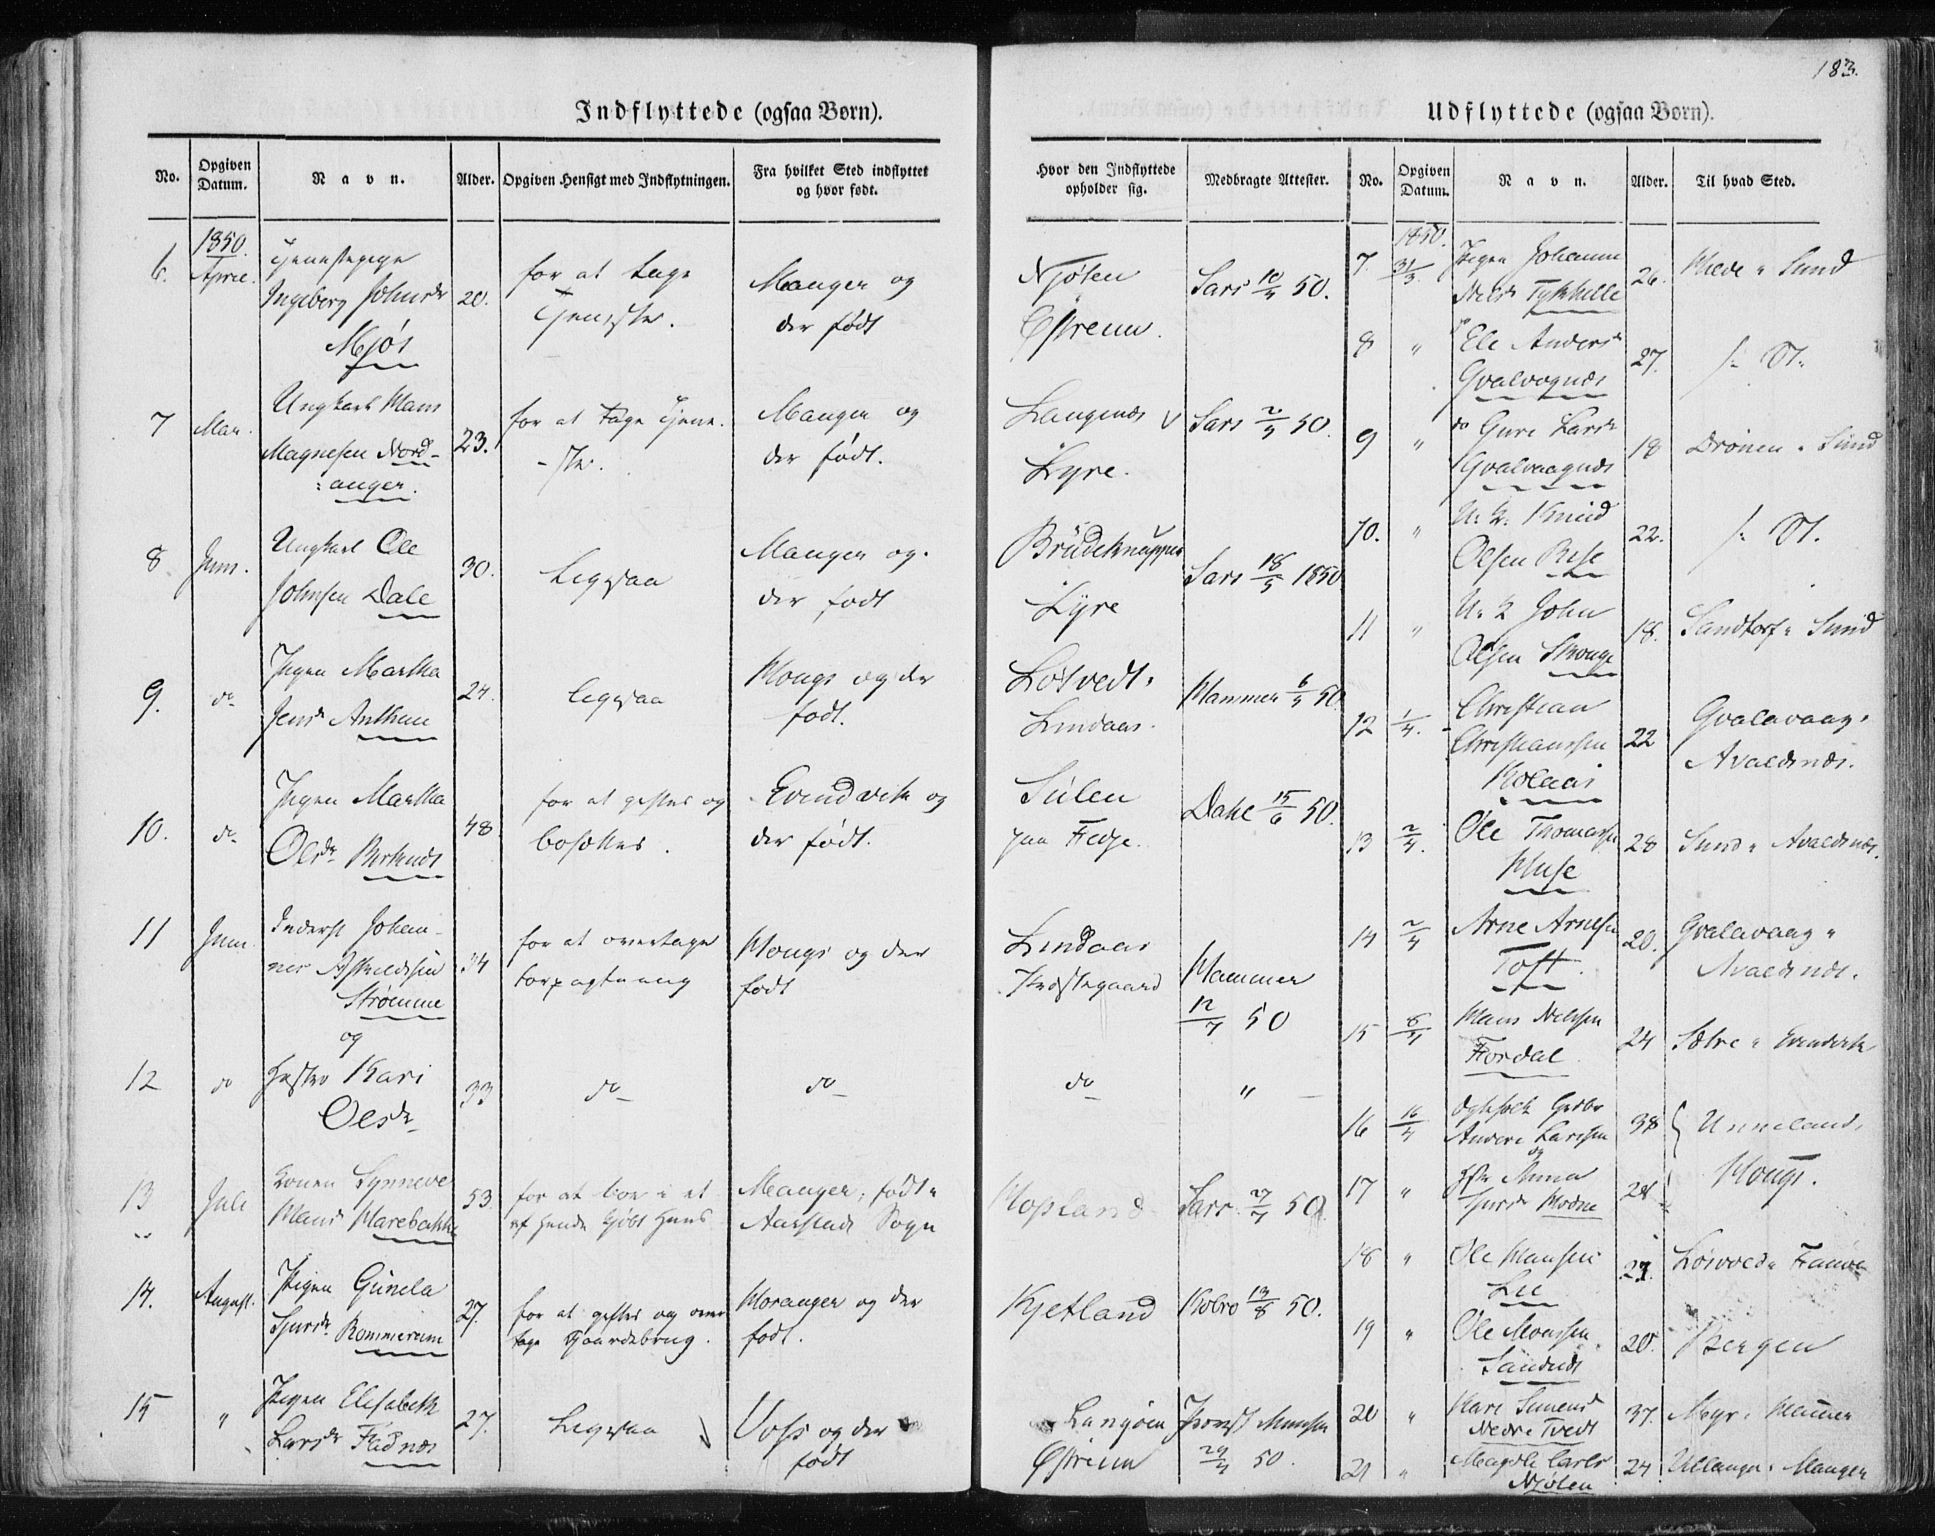 183.
Indflyttede (ogsaa Børn).
No.
Opgiven Datum.
Navn.
Alder.
Opgiven Hensigt med Indflytningen.
Fra hvilket Sted indflyttet og hvor født.
Hvor den Indflyttede opholder sig.
Medbragte Attester.
1850.
6. April. Tjenestepige
Ingeborg Johnsdr
Mjøs
20.
for at tage
Tjeneste.
Manger og
der født
Njøten
Østreim.
Sars 10/4 50.
7 Mai. Ungkarl Mans
Magnesen Nord-
anger.
23.
for at tage Tjene-
-ste.
Manger og
der født.
Langenæs
Lyre.
Sars 2/5 50.
8. Juni. Ungkarl Ole
Johnsen Dale
30.
Ligesaa
Manger og
der født
Brudeknappen
Lyre
Sars 18/5 1850
9. do Pigen Martha
Jensdr Anthun
24.
ligesaa
Houg og der
født.
Løtvedt
Lindaas.
Hammer 6/5 50.
10. do Pigen Martha
Olsdr Birknes
48
for at giftes og
bosættes.
Evindvik og
der født.
Sulen
paa Fedje.
Dahl 15/6 50.
11 Juni Inderst Johan-
nes
Strømme
og
34
for at overtage
forpagtning
Houg og der
født
Lindaas
Præstegaard
Hammer
12/7 50
12 do Hustru Kari
Olsdr
33
do
do
do
"
13 Juli Konen Synneve
Mansdr Marebakke
53.
for at boe i et
af hende kjøbt Huus
Manger, født i
Aarstad Sogn
Hopland
Sars 27/7 50
14. August. Pigen Gunela
Sjursdr Rommereim
27.
for at giftes og over
tage Gaardsbrug.
Hosanger og der
født.
Kjetland
Kobro 13/8 50.
15 " Pigen Elisabeth
Larsdr Fadnæs
27.
Ligesaa
Voss og der
født
Langøen
Østreim
Provst Munster
29/4 50.
Udflyttede (ogsaa Børn).
No.
Opgiven Datum.
Navn.
Alder.
Til hvad Sted.
1850.
7. 31/3. Pigen Johanne
Nelsdr Tykhelle
26. Sund
8 " do Ele Andersdr
Qvalvognæs
27. do
9 " do Guro Larsdr
Qvalvaagnæs
18 Drønen Sund
10. " U. K. Knud
Olsen Rise
22. do
11 " U. K John
Olsen
18. Sandtorf Sund
12 1/4. Christian
Christiansen
Kolaas
22 Qvalavaag,
Avaldsnæs.
13 2/4. Ole Thomassen
Huse
28 Sund Avaldsnæs.
14 2/4 Arne Arnesen
Toft.
20. Qvalavaag
Avaldsnæs.
15 8/4 Mans Nelssen
Fordal
24 Evindvik
16 16/4
Anders Larssen
og
38 Unneland,
17 " Anna
Sjursdr Modne
28 Houg.
18 " Ole Mansen
Lie
27. Løsvved
19 " Ole Monssen
Sandnæs
20. Bergen
20 " Kari Simensdr
Nedre Tvedt
37. Myr Hammer
21 " Magdli Carlsdr
Njøten
24. Ullanger Manger